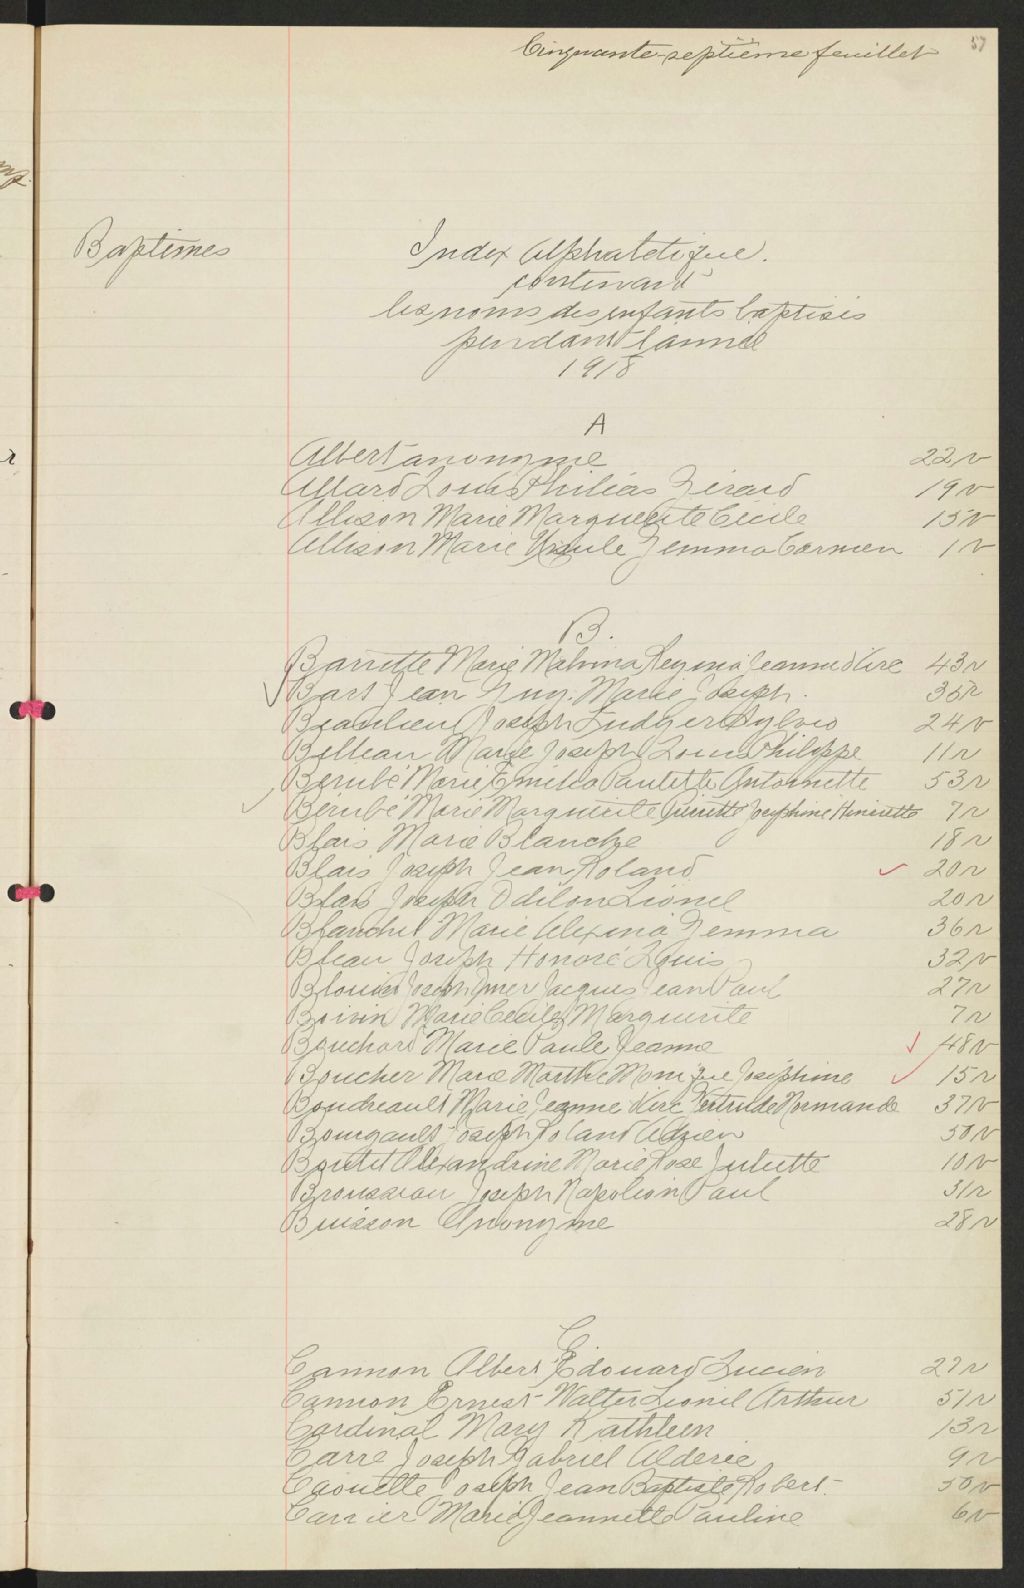 Cinquante-septième feuillet
57
Baptêmes
Index Alphabétique.
contenant
les noms des enfants baptisés
pendant l'année
1918
A
Albert anonyme 22v
Allard Louis Philias Gérard 19v
Allison Marie Marguerite Cécile 15v
Allison Marie Ursule Gemma Carmen 1v
B.
Barrette Marie Malvina Reyma Jeanne d'Arc 43r
Bart Jean Guy. Marie Joseph. 35r
Beaulieu Joseph Ludger Sylvio 24v
Billeau Marie Joseph Louis Philippe 11r
Bérubé Marie Emelia Paulette Antoinette 53r
Bérubé Marie Marguerite Pierrette Joséphine Henriette 7r
Blais Marie Blanche 18r
Blais Joseph Jean Roland 20r
Blais Joseph Odilon Lionel 20r
Blanchet Marie Alexina Gemma 36r
Bleau Joseph Honoré Louis 32v
Blouin Joseph Omer Jacques Jean Paul 27r
Boivin Marie Cécile Marguerite 7r
Bouchard Marie Paule Jeanne 48v
Boucher Marie Marthe Monique Joséphine 15r
Boudreault Marie Jeanne d'Arc Gertrude Normande 37v
Bourgault Joseph Roland Adrien 50v
Boutet Alexandrine Marie Rose Juliette 10v
Brousseau Joseph Napoléon Paul 31r
Buisson Anonyme 28r
C
Cannon Albert Édouard Lucien 27r
Cannon Ernest Walter Lionel Arthur 51r
Cardinal Mary Kathleen 13r
Carre Joseph Gabriel Alderic 9r
Caouette Joseph Jean Baptiste Robert 50v
Carrier Marie Jeannette Pauline 6v